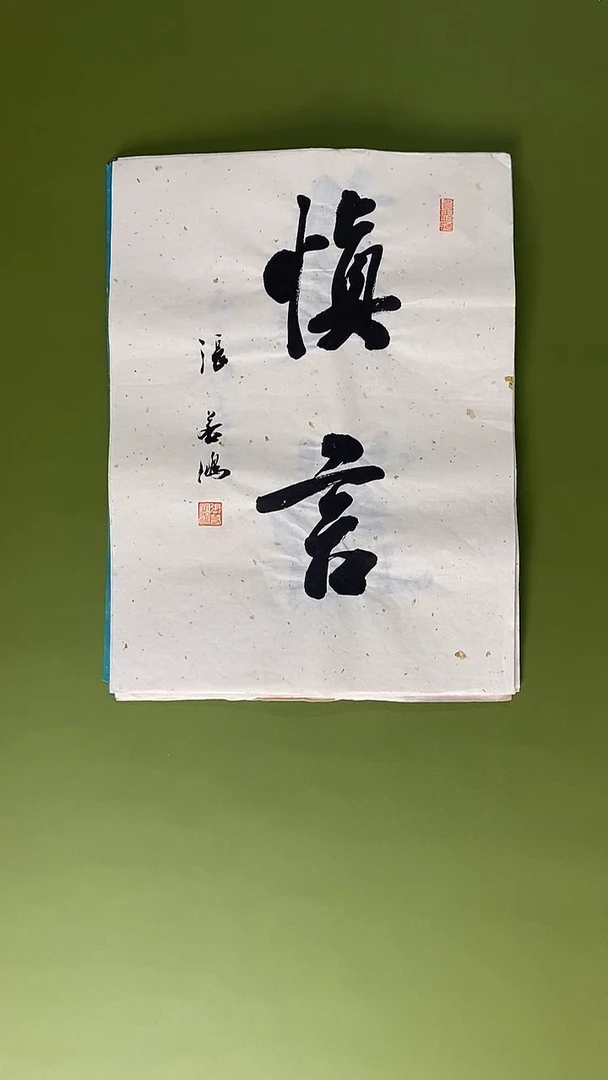 慎言
張善鴻